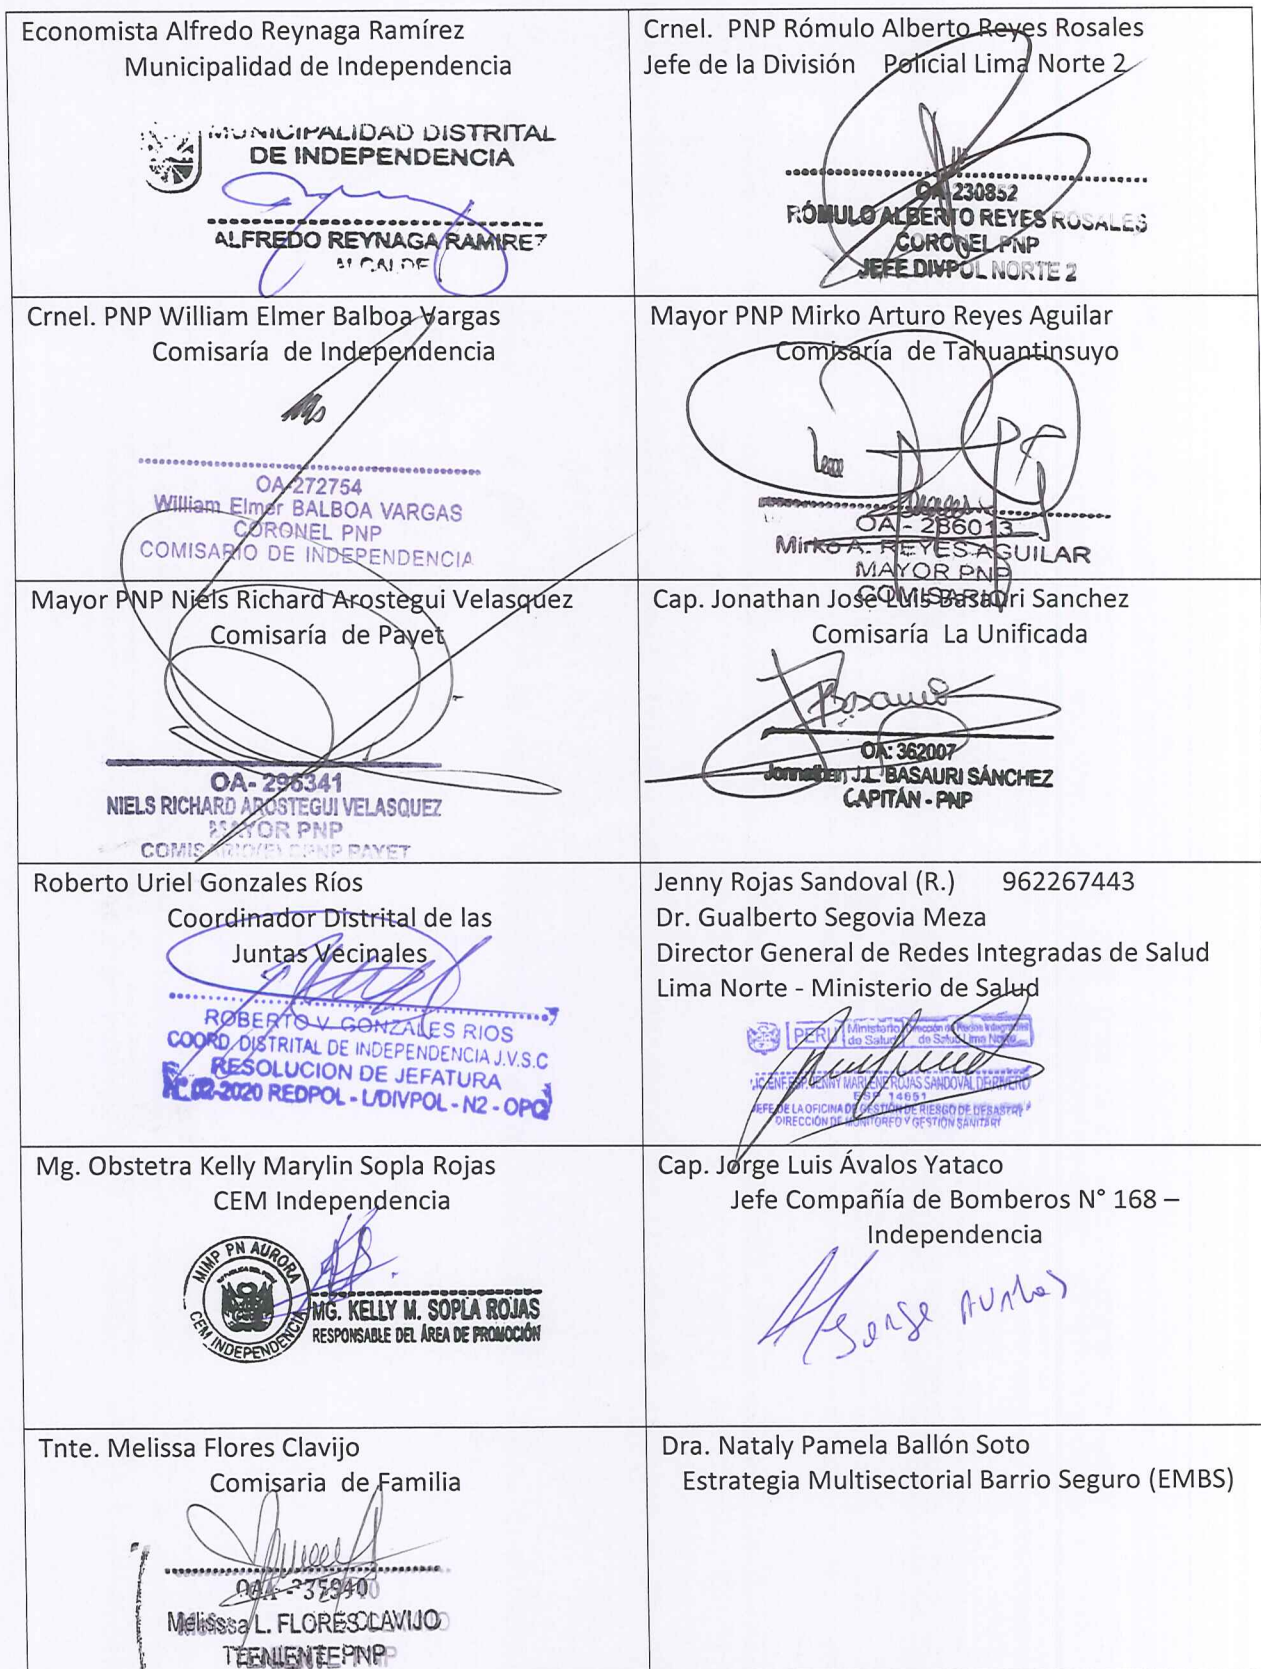 Economista Alfredo Reynaga Ramírez
Municipalidad de Independencia
MUNICIPALIDAD DISTRITAL
DE INDEPENDENCIA
ALFREDO REYNAGA RAMIREZ
ALCALDE
Crnel. PNP Rómulo Alberto Reyes Rosales
Jefe de la División Policial Lima Norte 2
OA-230852
RÓMULO ALBERTO REYES ROSALES
CORONEL PNP
JEFE DIVPOL NORTE 2
Crnel. PNP William Elmer Balboa Vargas
Comisaría de Independencia
OA-272754
William Elmer BALBOA VARGAS
CORONEL PNP
COMISARIO DE INDEPENDENCIA
Mayor PNP Mirko Arturo Reyes Aguilar
Comisaría de Tahuantinsuyo
OA - 286013
Mirko A. REYES AGUILAR
MAYOR PNP
COMISARIO
Mayor PNP Niels Richard Arostegui Velasquez
Comisaría de Payet
OA- 296341
NIELS RICHARD AROSTEGUI VELASQUEZ
MAYOR PNP
COMISARIO(E) CPNP PAYET
Cap. Jonathan José Luis Basauri Sanchez
Comisaría La Unificada
Basauri
OA: 362007
Jonnathan J.L. BASAURI SÁNCHEZ
CAPITÁN - PNP
Roberto Uriel Gonzales Ríos
Coordinador Distrital de las
Juntas Vecinales
ROBERTO V. GONZALES RIOS
COORD. DISTRITAL DE INDEPENDENCIA J.V.S.C
RESOLUCION DE JEFATURA
N° 02-2020 REDPOL - L/DIVPOL - N2 - OPC
Jenny Rojas Sandoval (R.) 962267443
Dr. Gualberto Segovia Meza
Director General de Redes Integradas de Salud
Lima Norte - Ministerio de Salud
PERÚ Ministerio de Salud Dirección de Redes Integradas de Salud Lima Norte
LIC.ENF.ESP. JENNY MARLENE ROJAS SANDOVAL DE RIVERO
ESP 14651
JEFE DE LA OFICINA DE GESTIÓN DE RIESGO DE DESASTRE
DIRECCIÓN DE MONITOREO Y GESTIÓN SANITARI
Mg. Obstetra Kelly Marylin Sopla Rojas
CEM Independencia
MIMP PN AURORA
CEM INDEPENDENCIA
MG. KELLY M. SOPLA ROJAS
RESPONSABLE DEL ÁREA DE PROMOCIÓN
Cap. Jorge Luis Ávalos Yataco
Jefe Compañía de Bomberos N° 168 –
Independencia
Jorge Avalos
Tnte. Melissa Flores Clavijo
Comisaria de Familia
Melissa L. FLORES CLAVIJO
TENIENTE PNP
Dra. Nataly Pamela Ballón Soto
Estrategia Multisectorial Barrio Seguro (EMBS)